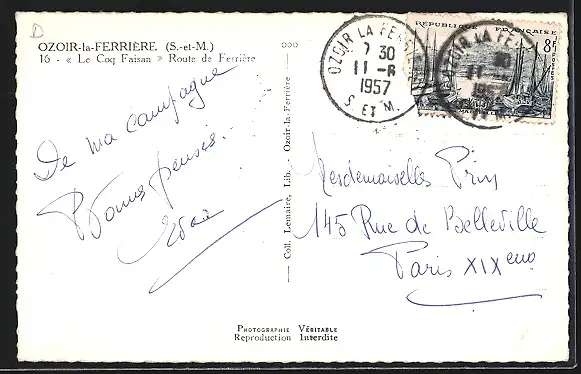 D
OZOIR-la-FERRIÈRE (S.-et-M.)
16 - « Le Coq Faisan » Route de Ferrière
De ma campagne
Bonnes pensées.
Coll. Lemaire, Lib. - Ozoir-la-Ferrière
OZOIR LA FERRI
7 30
11-6
1957
S. ET M.
REPUBLIQUE FRANÇAISE
8F
POSTES
OZOIR LA FE
30
11
1957
Mesdemoiselles Prin
145 Rue de Belleville
Paris XIXeme
PHOTOGRAPHIE VÉRITABLE
Reproduction Interdite